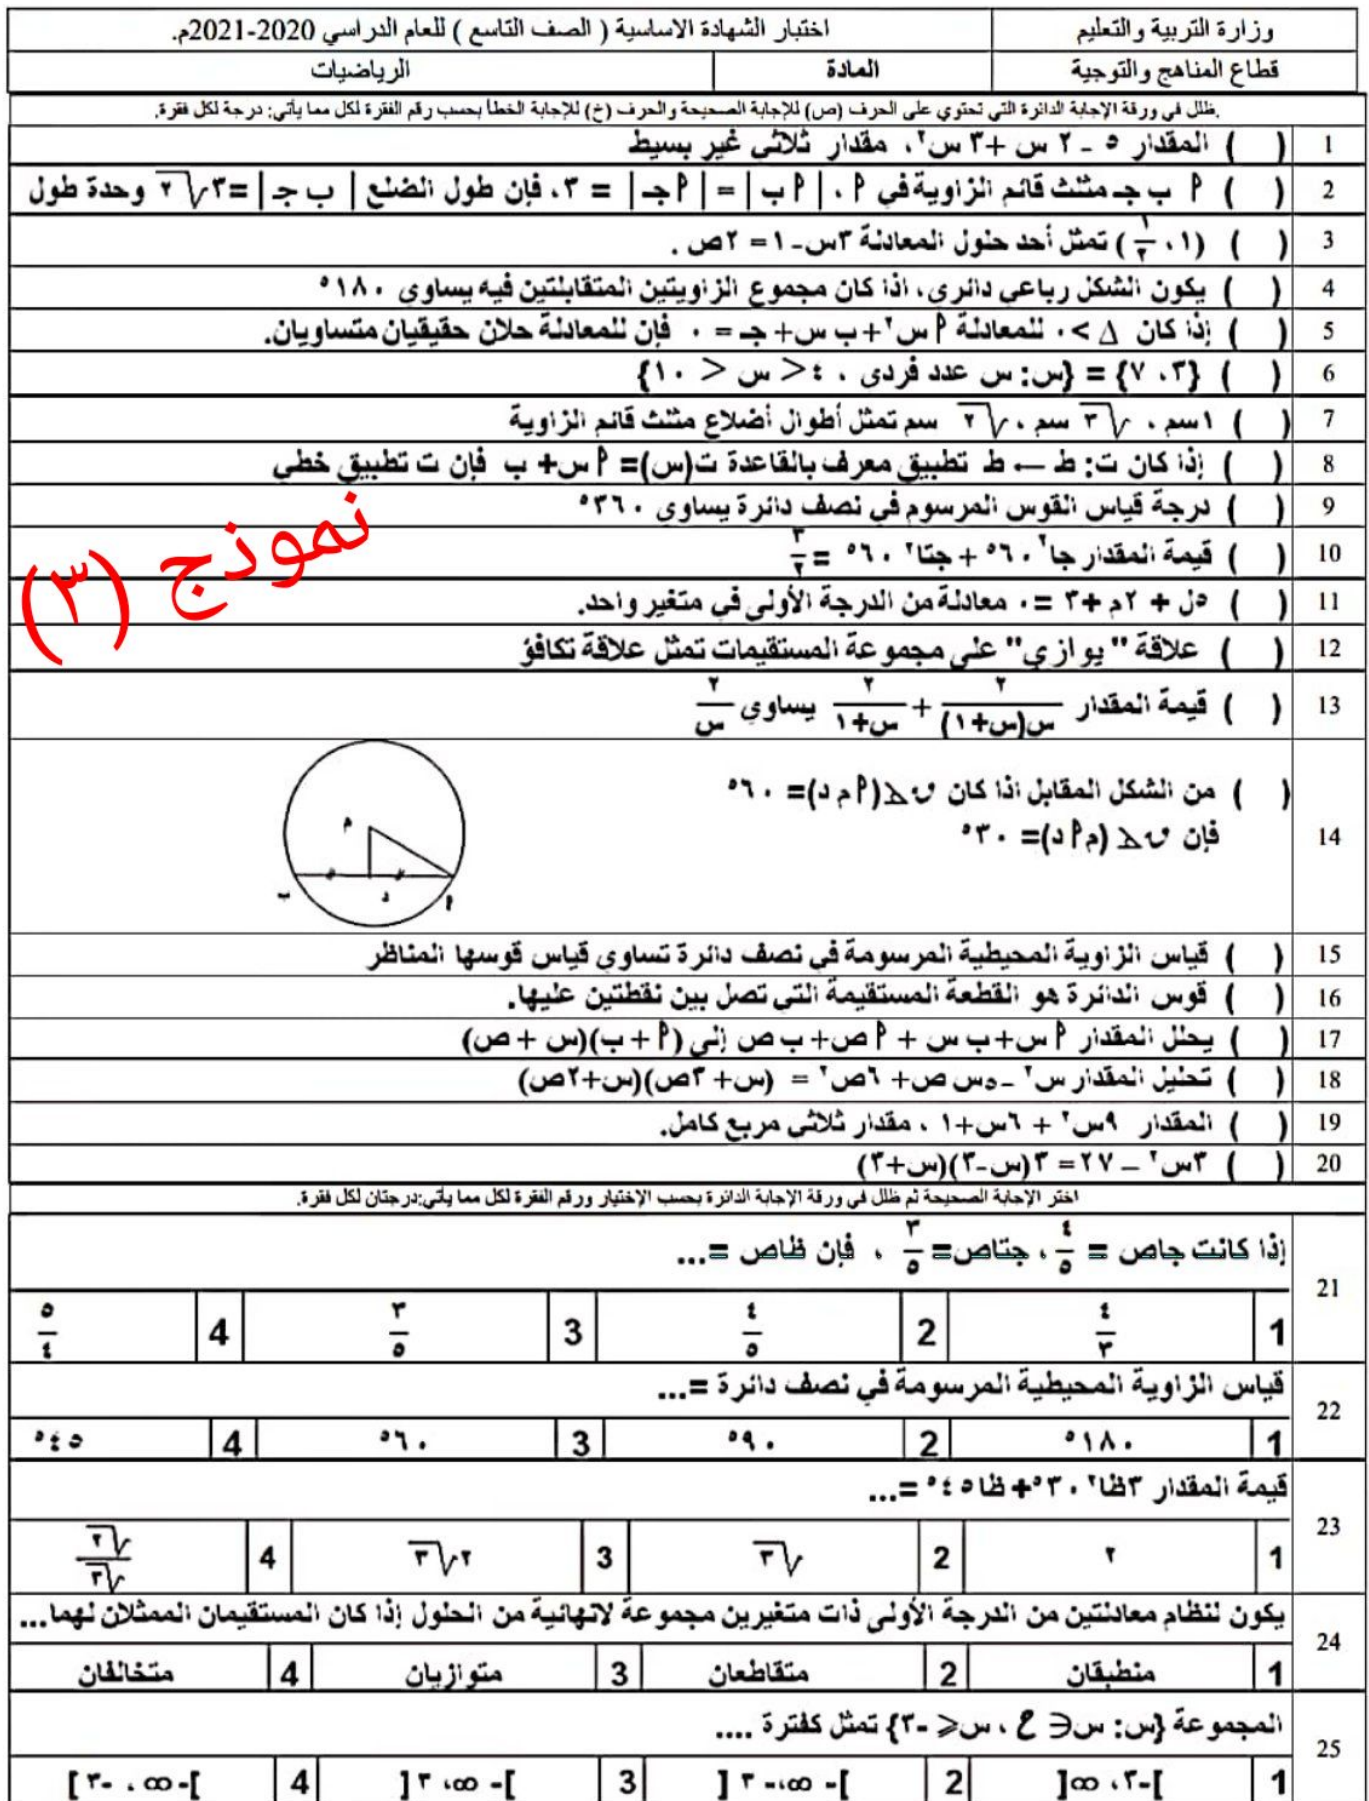 وزارة التربية والتعليم
اختبار الشهادة الاساسية ( الصف التاسع ) للعام الدراسي 2020-2021م.
قطاع المناهج والتوجية
المادة
الرياضيات
ظلل في ورقة الإجابة الدائرة التي تحتوي على الحرف (ص) للإجابة الصحيحة والحرف (خ) للإجابة الخطأ بحسب رقم الفقرة لكل مما يأتي: درجة لكل فقرة.
1 ( ) المقدار ٥ - ٢ س +٣ س٢، مقدار ثلاثي غير بسيط
2 ( ) ٩ ب جـ مثلث قائم الزاوية في ٩ ، | ٩ ب | = | ٩ جـ | = ٣، فإن طول الضلع | ب جـ | =٣√٢ وحدة طول
3 ( ) (١، ١/٢) تمثل أحد حلول المعادلة ٣س-١= ٢ص .
4 ( ) يكون الشكل رباعي دائري، اذا كان مجموع الزاويتين المتقابلتين فيه يساوي ١٨٠°
5 ( ) إذا كان Δ >٠ للمعادلة ٩ س٢+ ب س+ جـ = ٠ فإن للمعادلة حلان حقيقيان متساويان.
6 ( ) {٣، ٧} = {س: س عدد فردي ، ٤< س < ١٠}
7 ( ) ١سم ، √٣ سم ، √٢ سم تمثل أطوال أضلاع مثلث قائم الزاوية
8 ( ) إذا كان ت: ط ← ط تطبيق معرف بالقاعدة ت(س)= ٩ س+ ب فإن ت تطبيق خطي
9 ( ) درجة قياس القوس المرسوم في نصف دائرة يساوي ٣٦٠°
10 ( ) قيمة المقدار جا٢ ٦٠° + جتا٢ ٦٠° = ٣/٢
نموذج (٣)
11 ( ) ٥ل + ٢م +٣ =٠ معادلة من الدرجة الأولى في متغير واحد.
12 ( ) علاقة " يوازي" على مجموعة المستقيمات تمثل علاقة تكافؤ
13 ( ) قيمة المقدار ٢/س(س+١) + ٢/س+١ يساوي ٢/س
14 ( ) من الشكل المقابل اذا كان ن∡(٩ م د)= ٦٠°
فإن ن∡ (م ٩ د)= ٣٠°
م
ب د ٩
15 ( ) قياس الزاوية المحيطية المرسومة في نصف دائرة تساوي قياس قوسها المناظر
16 ( ) قوس الدائرة هو القطعة المستقيمة التي تصل بين نقطتين عليها.
17 ( ) يحلل المقدار ٩ س+ ب س + ٩ ص+ ب ص إلى (٩ + ب)(س + ص)
18 ( ) تحليل المقدار س٢ -٥س ص+ ٦ص٢ = (س+ ٣ص)(س+٢ص)
19 ( ) المقدار ٩س٢ + ٦س+١ ، مقدار ثلاثي مربع كامل.
20 ( ) ٣س٢ – ٢٧ = ٣(س-٣)(س+٣)
اختر الإجابة الصحيحة ثم ظلل في ورقة الإجابة الدائرة بحسب الإختيار ورقم الفقرة لكل مما يأتي:درجتان لكل فقرة.
21 إذا كانت جاص = ٤/٥، جتاص= ٣/٥ ، فإن ظاص =...
1 ٤/٣ 2 ٤/٥ 3 ٣/٥ 4 ٥/٤
22 قياس الزاوية المحيطية المرسومة في نصف دائرة =...
1 ١٨٠° 2 ٩٠° 3 ٦٠° 4 ٤٥°
23 قيمة المقدار ٣ظا٢ ٣٠°+ ظا٤٥° =...
1 ٢ 2 √٣ 3 ٢√٣ 4 √٢/√٣
24 يكون لنظام معادلتين من الدرجة الأولى ذات متغيرين مجموعة لانهائية من الحلول إذا كان المستقيمان الممثلان لهما...
1 منطبقان 2 متقاطعان 3 متوازيان 4 متخالفان
25 المجموعة {س: س∈ ح ، س⩽ -٣} تمثل كفترة ....
1 [-٣، ∞[ 2 ]- ∞،- ٣ [ 3 ]- ∞، ٣[ 4 ]- ∞ ، -٣ ]